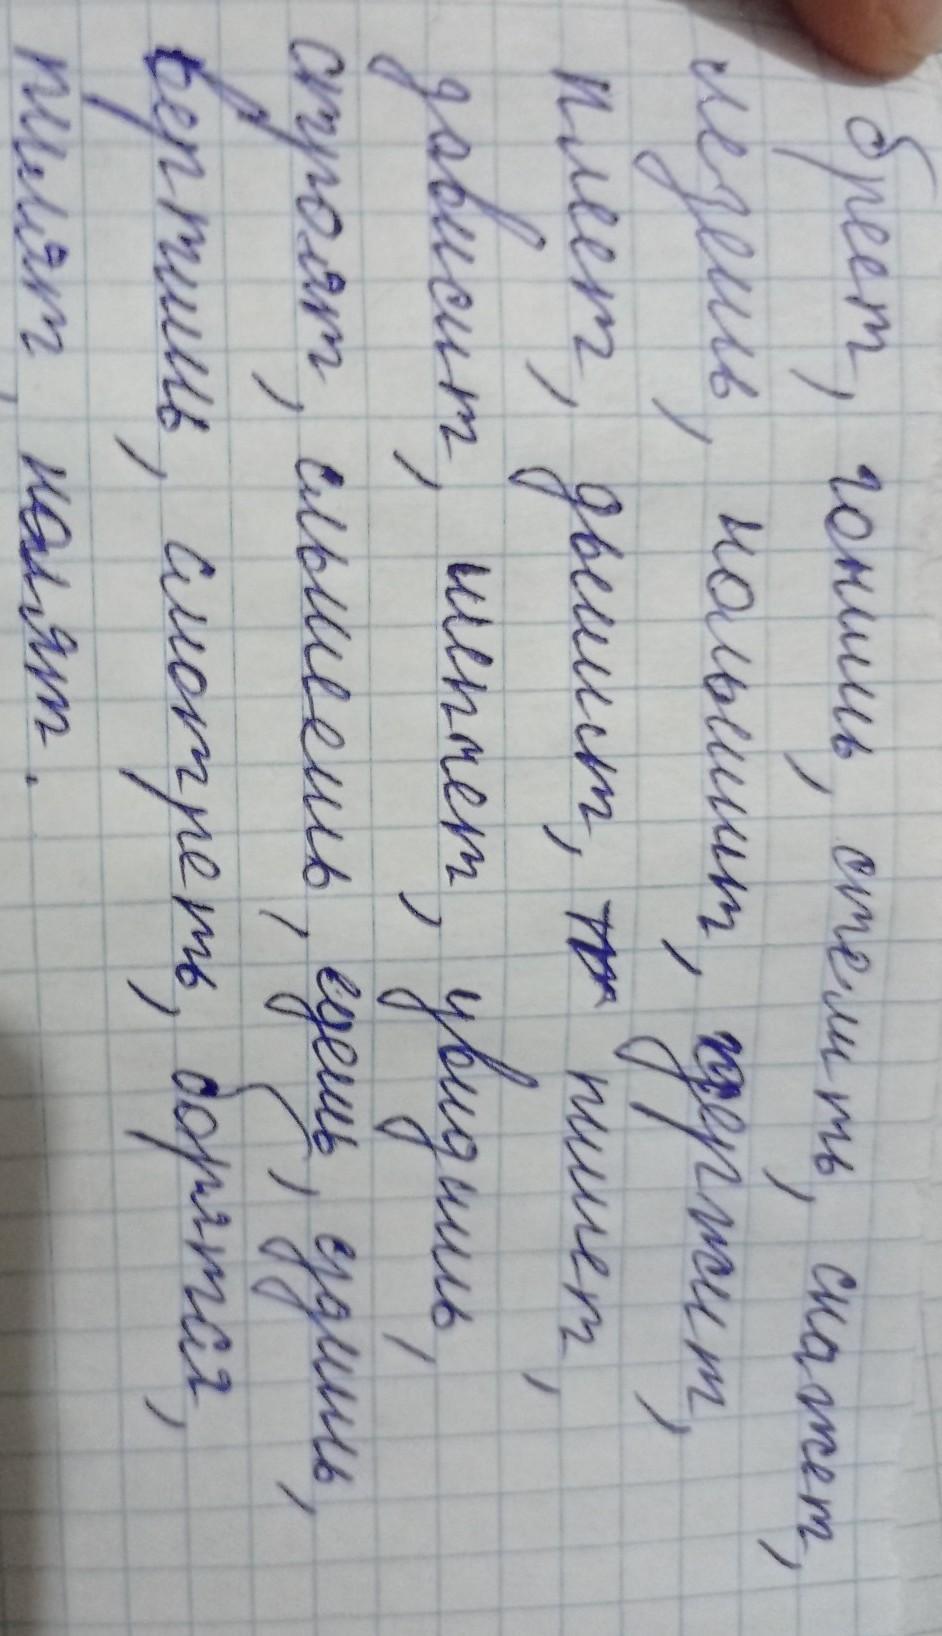 бреет, гонишь, стелить, скажет,
лезешь, колышит, держит,
клеет, дышит, пишет,
зависит, шепчет, увидишь,
строят, слышешь, едешь, ездишь,
вертишь, смотреть, борятся,
пилят, колят.